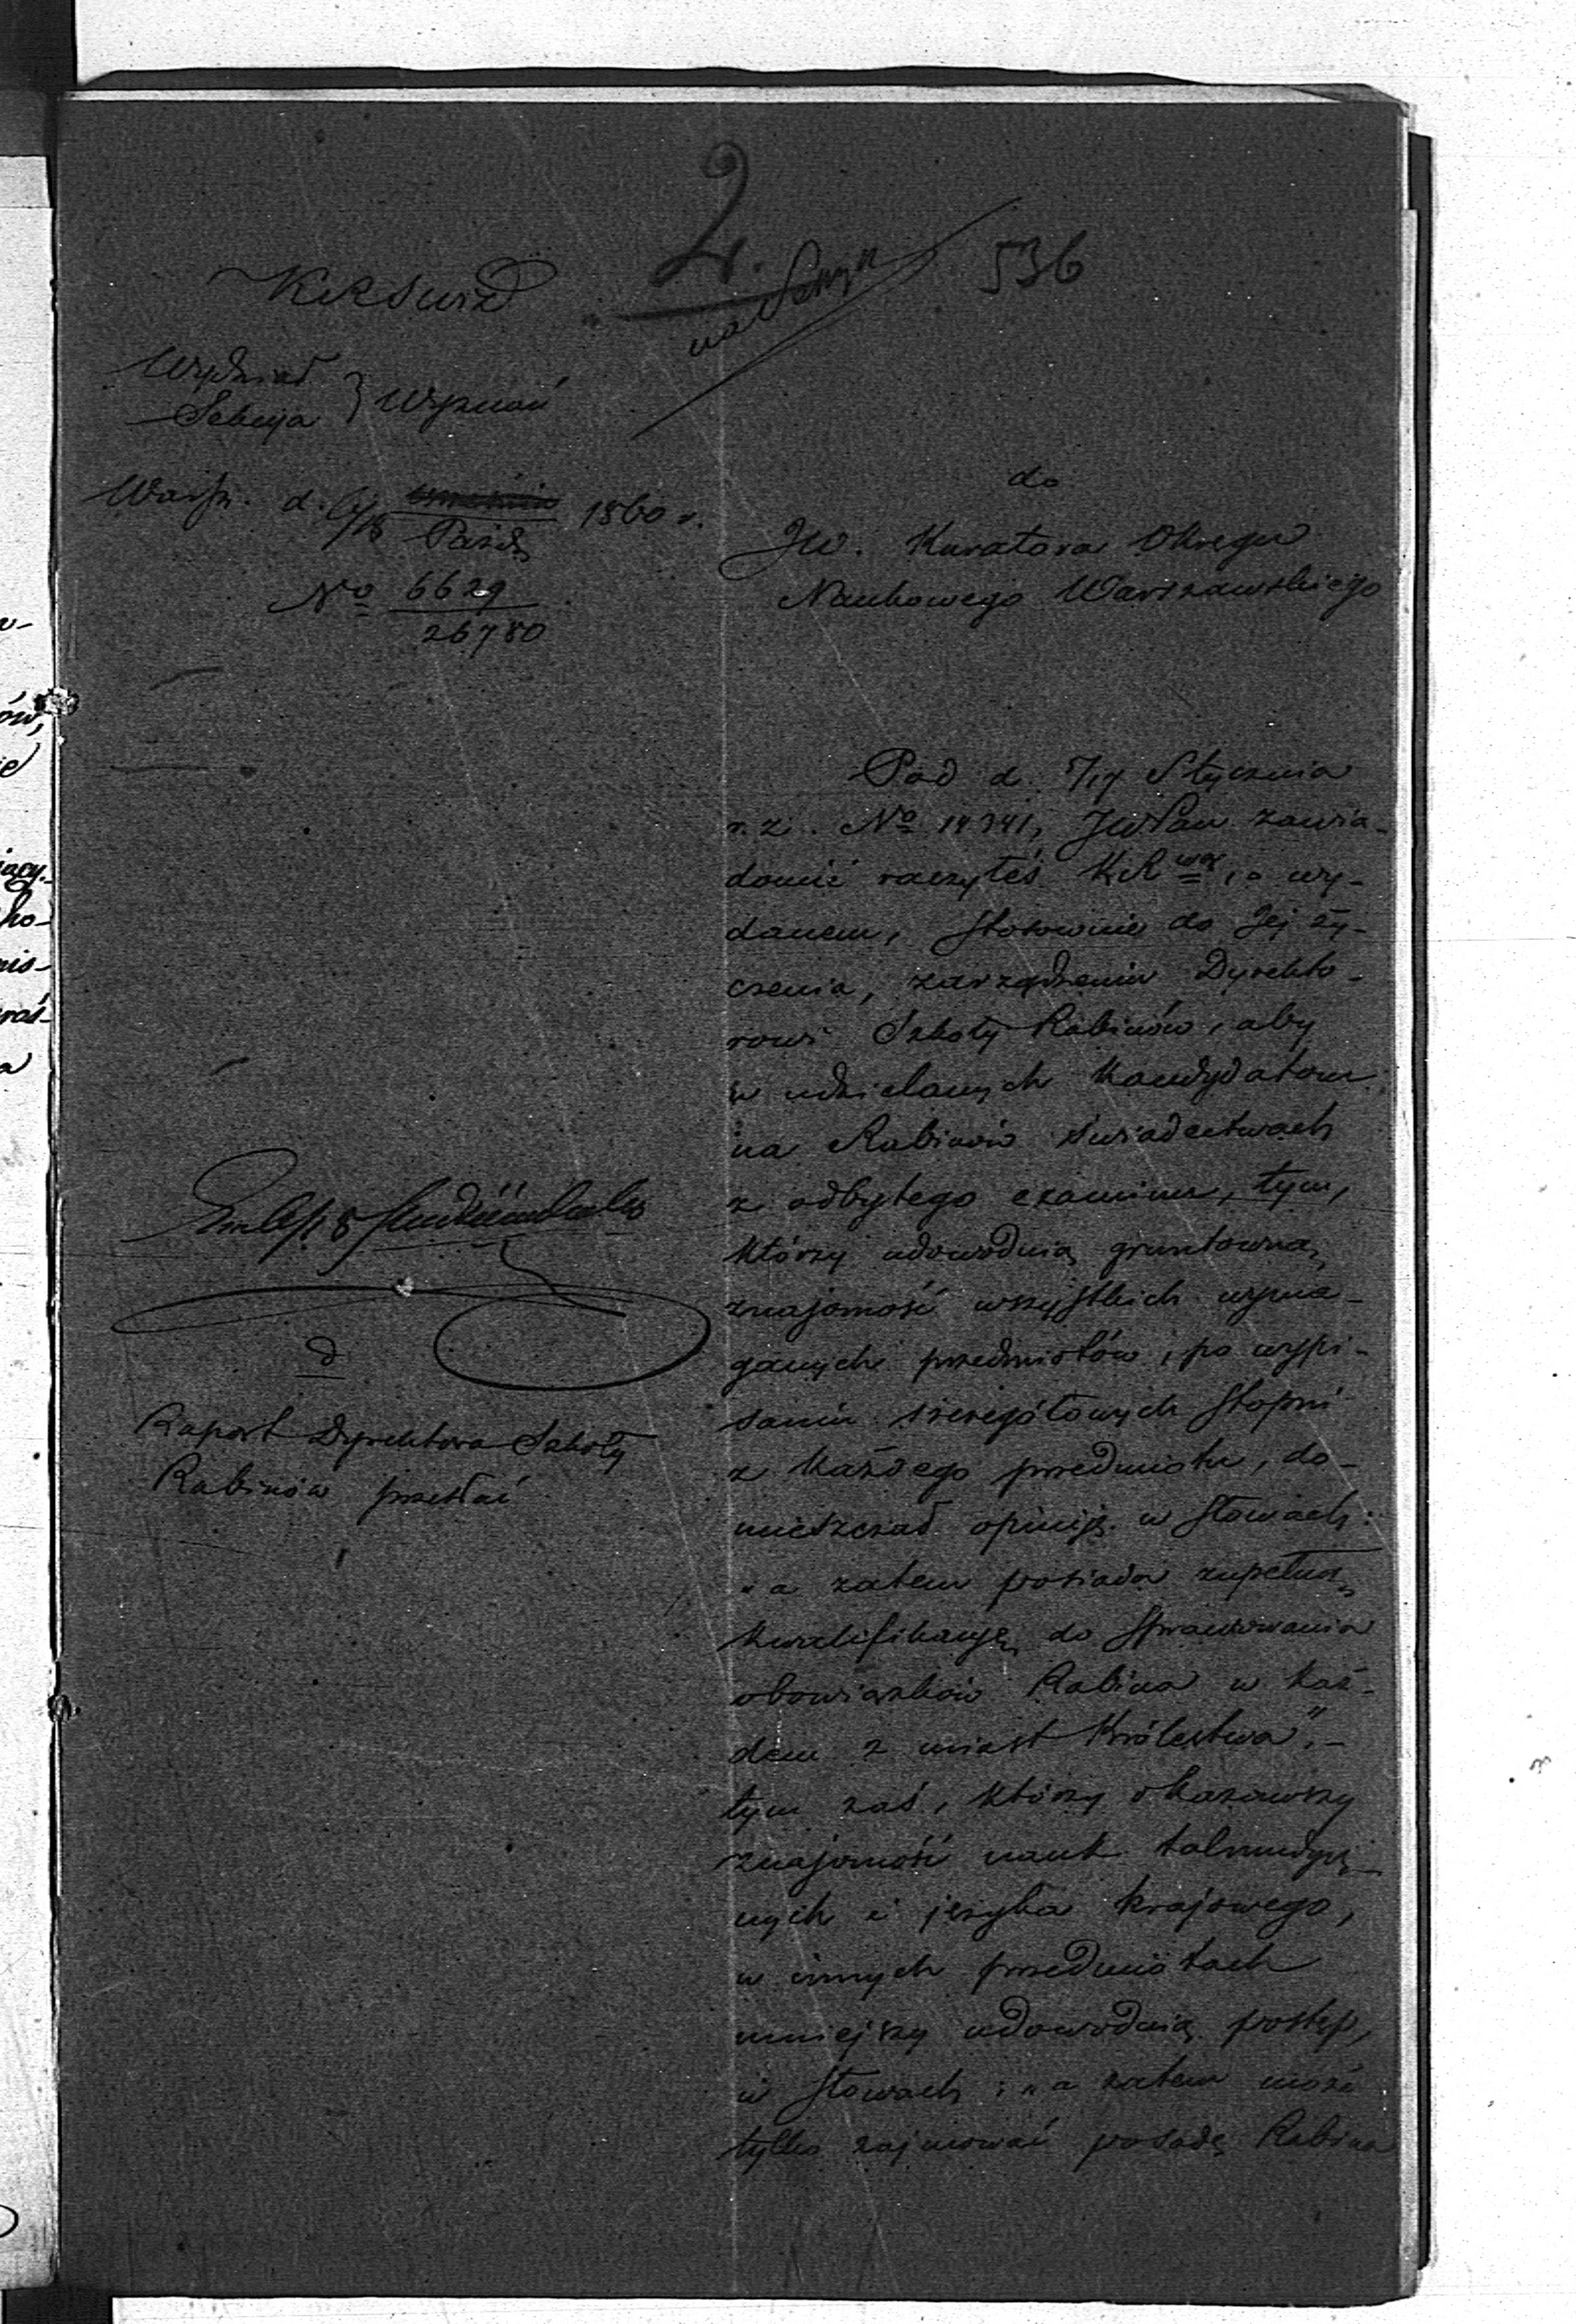 2.
536
KRSWiD
Wydział
Sekcya } Wyznań
Warsz. d. 6/18 Paźdz 1860 r.
No 6629
26780
do
JW. Kuratora Okręgu
Naukowego Warszawskiego
Pod d. 5/17 Stycznia
r. z. No 14341, JWPan zawia-
domić raczyłeś KR, o wy-
danem, stosownie do Jej ży-
czenia, zarządzeniu Dyrekto-
rowi Szkoły Rabinów, aby
w udzielanych Kandydatom
na Rabinów świadectwach
z odbytego examinu, tym,
którzy udowodnią gruntowną
znajomość wszystkich wyma-
ganych przedmiotów, po wypi-
saniu szczegółowych stopni
z każdego przedmiotu, do-
mieszczał opiniję w słowach:
„a zatem posiada zupełną
kwalifikacyę do sprawowania
obowiązków Rabina w każ-
dem z miast Królestwa”. -
tym zaś, którzy okazawszy
znajomość nauk talmudycz-
nych i języka krajowego,
w innych przedmiotach
mniejszy udowodnią postęp,
w słowach: „a zatem może
tylko zajmować posadę Rabina
d
Raport Dyrektora Szkoły
Rabinów przesłać